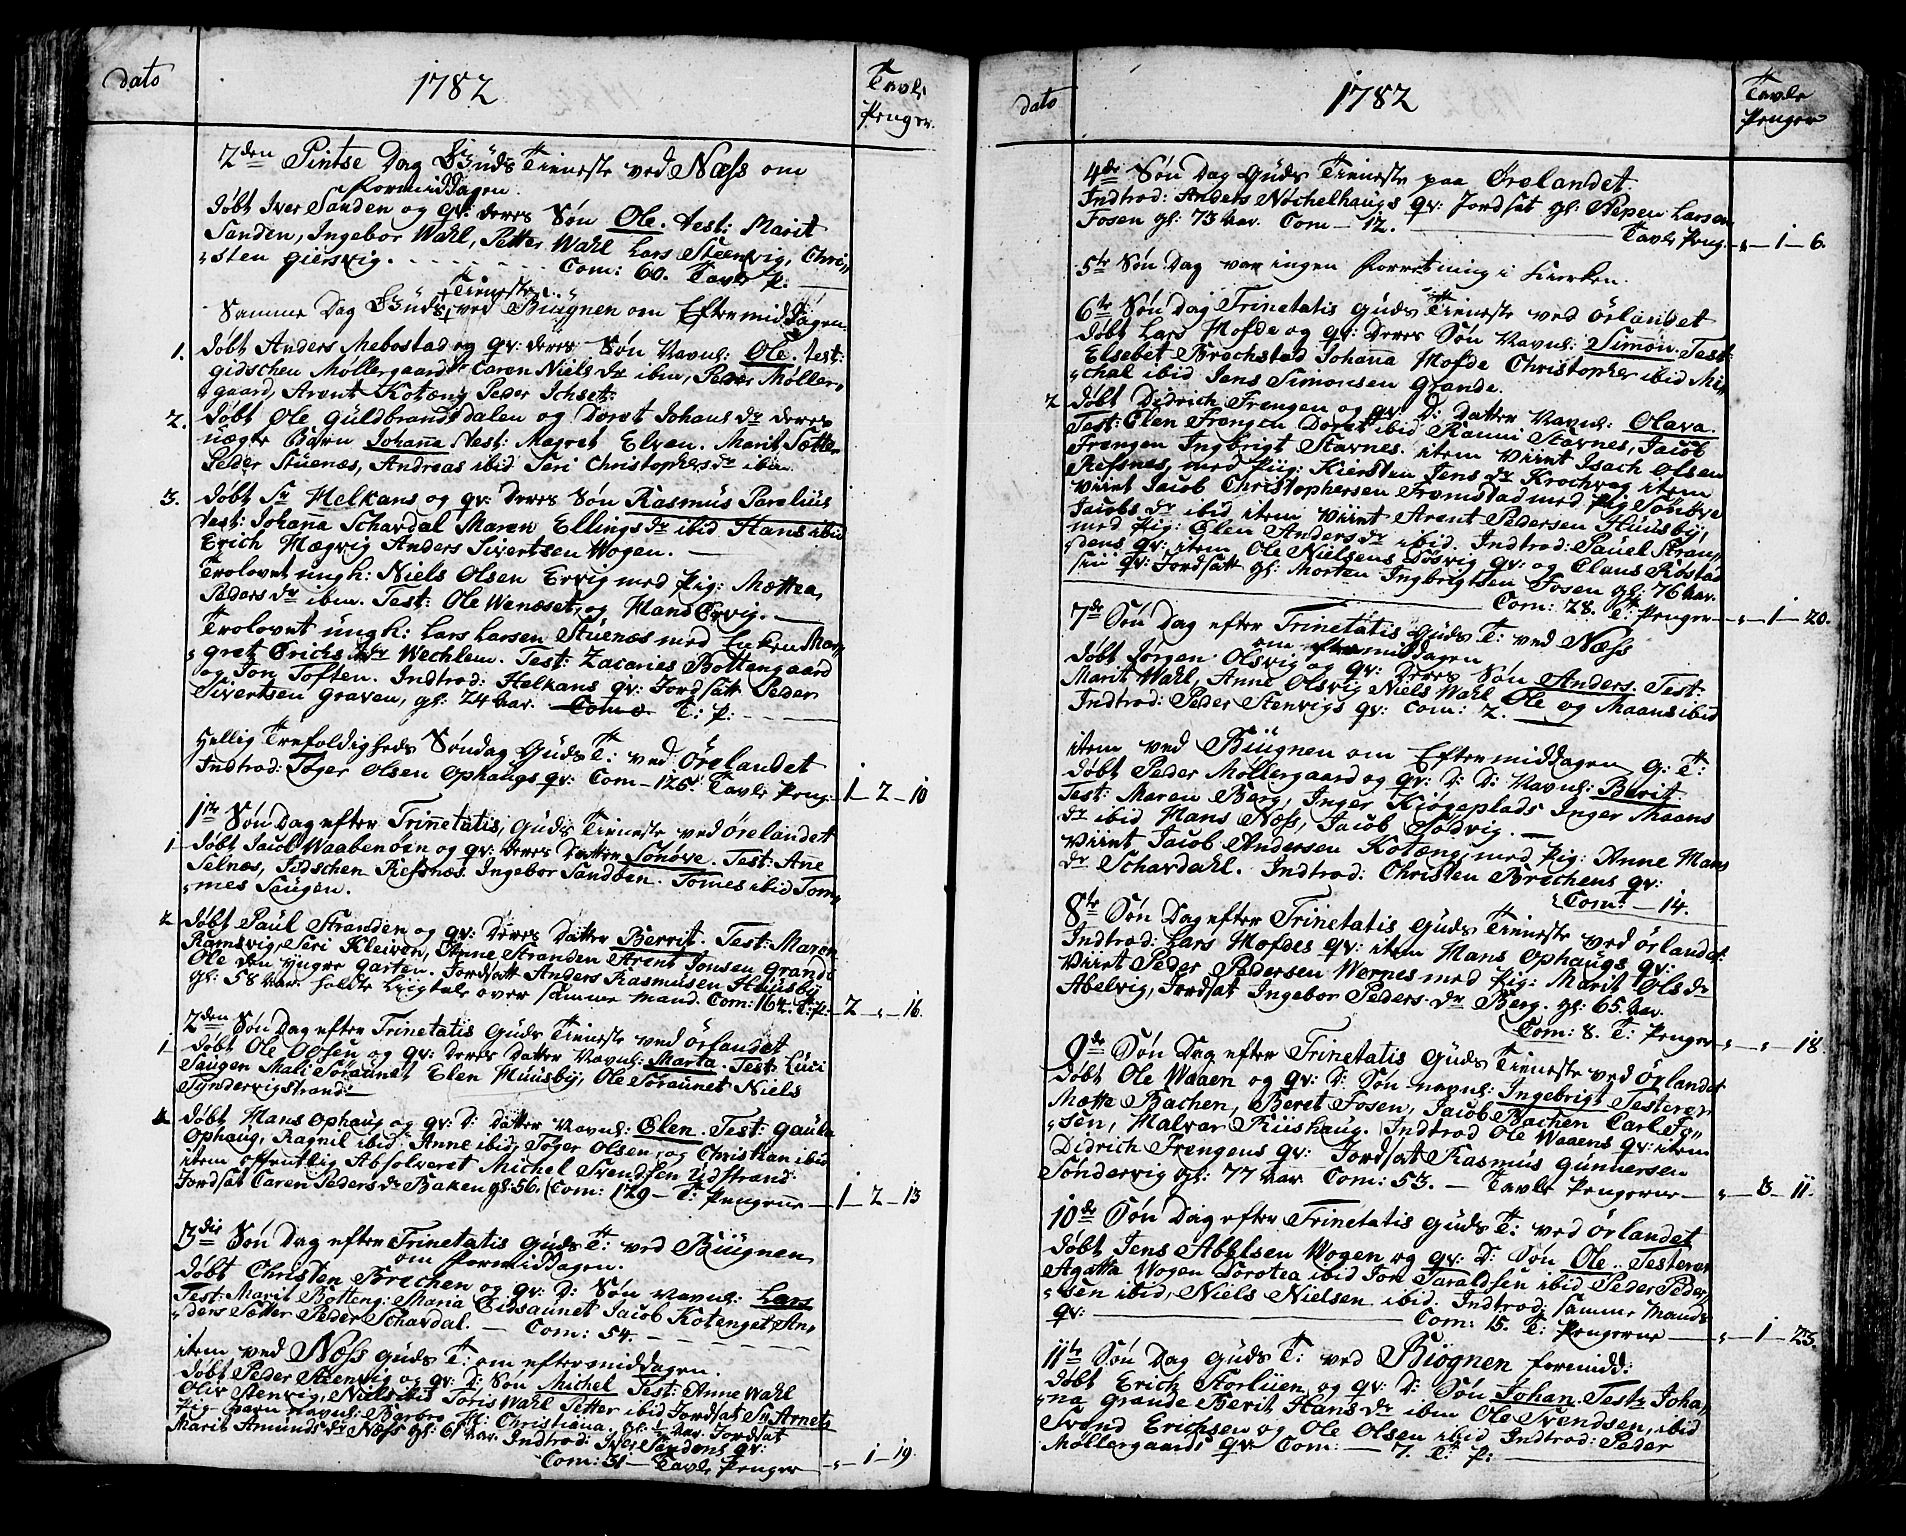 dato
1782
Tavle
Penger.
2den Pintse Dag Guds Tieneste ved Næss om
Formiddagen.
døbt Iver Sanden og qv: deres Søn Ole. test: Marit
Sanden, Ingebor Wahl, Petter Wahl Lars Steenvig, Chri„
„sten giersvig. Com: 60. Tavle P:
Samme Dag Guds Tieneste ved Biügnen om Eftermiddagen
1. døbt Anders Mebostad og qv: deres Søn Navnl: Ole. test:
gidschen Møllergaard Caren Niels dr ibm, Peder Møller„
„gaard, Arent Kotæng Peder Ichset:
2. døbt Ole Güldbrandsdalen og Doret Johans dr deres
uægte Barn Johana test: Magret Elven. Marit Sætter
Peder Stüenæs, Andreas ibid Seri Christophers dr ibm.
3. døbt Sr Helkans og qv: deres Søn Rasmus Parelius
test: Johanna Schavdal Maren Ellings dr ibid Hans ibid
Erich Mægvig Anders Sivertsen Wogen.
Trolovet ungk: Niels Olsen Ervig med Pig: Mættea
Peders dr ibm. Test: Ole Wenæset, og Hans Ervig.
Trolovet ungk: Lars Larsen Stüenæs med Enken Mar„
„gret Erichs dr Wechlem. Test: Zacaries Bottengaard
og Jon Toften. Indtrod: Helkans qv: Jordsatt Peder
Sivertsen Graven, gl: 24 Aar. Com 0 T: P:
Hellig Trefoldigheds Søndag Guds T: ved Ørelandet
Indtrod: Tøger Olsen Ophaugs qv: Com - 126. Tavle Peng: 1 - 2 - 10
1ste Søn Dag efter Trinetatis, Guds Tieneste ved Ørelandet
1 døbt Jacob Waabenøin og qv: deres Datter Sønøve. Test: Ane
Selnæs, Gidschen Refsnæs Ingebor Sandben. Tomes ibid Tom„
„mes Saugen.
2 døbt Paul Stranden og qv: Deres Datter Berrit. Test: Maren
Ramsvig, Seri Kleiven, Anne Stranden Arent Jonsen Grande
Ole den yngre Garten. Jordsatt Anders Rasmusen Huusby
gl: 58 Aar. holdte Liigtale over samme Mand. Com: 164. T: P: - 2 - „ - 16.
2den Søn Dag efter Trinetatis Guds Tieneste ved Ørlandet
1 døbt Ole Opsen og qv: Deres Datter Navnl: Marta. Test: Luci
Saugen Mali Søraunet Elen Huusby, Ole Søraunet Niels
Tyndervigstrand:
2. døbt Hans Ophaug og qv: D: Datter Navnl: Elen. Test: Gaula
Ophaug, Ragnil ibid: Anne ibid, Tøger Olsen, og Christian ibid
item offentlig Absolveret Michel Svendsen Udstrand:
Jordsat Caren Peders dr Baken gl: 56. Com: 129 - T: Pengene - 1 - 2 - 13
3die Søn Dag efter Trinetatis Guds T: ved Biügnen
om Formiddagen.
døbt Christen Brechen og qv: D: Søn Navnl: Lars
Test: Marit Botteng: Maria Eidsaunet Jacob Kotenget, An„
„ders Sætter Peder Schavdal. - Com: 54.
item ved Næss Guds T: om eftermiddagen.
døbt Peder Stenvig og qv: D: Søn Michel Test: Anne Wahl
Oliv Stenvig, Niels ibid Joris Wahl Petter ibid Jordsat Sr Arnets
Pige Barn Navnl: Barbro M: Christiana gl: 1 Aar. Jordsat
Marit Amunds dr Næss gl: 61 Aar. Indtrod: Iver Sandens qv:
Com: 51 - Tavle Penger - „ - 1 - 19.
dato
1782
Tavle
Penger
4de Søn Dag Guds Tieneste paa Ørelandet.
Indtrod: Anders Nøchelhaugs qv: Jordsat gl: Aspen Larsen
Fosen gl: 73 Aar. Com - 12. Tavle Peng - „ - 1 - 6.
5te Søn Dag var ingen Forretning i Kierken.
6te Søn Dag Trinetatis Guds Tieneste ved Ørlandet
døbt Lars Hofde og qv: Deres Søn Navnl: Simon. Test:
Elsebet Brochstad Johanna Hofde Christopher ibid Mi„
„chal ibid Jens Simonsen Grande.
2 døbt Didrich Frengen og qv: D: Datter Navnl: Olava.
Test: Elen Frengen Doret ibid Ranni Stavnes, Jacob
Frengen Ingbrigt Stavnes. item Viiet Isach Olsen
Refsnes, med Piig: Kiersten Jens dr Krochvag item
Viiet Jacob Christophersen Fremstad med Pig Sønøve
Jacobs dr ibid item Viiet Arent Pedersen Huusby,
med Pig: Elen Anders dr ibid. Indtrod: Pauel Stran„
„dens qv: item Ole Nielsens Døsvig qv: og Claus Røstad
sin qv: Jordsatt gl: Morten Ingbrigtsen Fosen gl: 76 Aar.
Com: 28. T: Penger - „ - 1 - 20.
7de Søn Dag efter Trinetatis Guds T: ved Næss
om eftermiddagen
døbt Jørgen Olsvig og qv: Deres Søn Anders. Test:
Marit Wahl, Anne Olsvig Niels Wahl Ole og Maans ibid
Indtrod: Peder Stenvigs qv: Com: 2.
item ved Biügnen om Eftermiddagen G: T:
døbt Peder Møllergaard og qv: D: D: Navnl: Berit.
Test: Maren Berg, Inger Kiøgeplads Inger Maans
dr ibid Hans Næss, Jacob Sødvig.
Viiet Jacob Andersen Kotæng, med Pig: Anne Hans
dr Schavdahl. Indtrod: Christen Brechens qv:
Com: - 14.
8te Søn Dag efter Trinetatis Guds Tieneste ved Ørlandet
Indtrod: Lars Hofdes qv: item Hans Ophaugs qv:
Viiet Peder Pedersen Wernes med Pig: Marit Ols dr
Abelvig, Jordsat Ingebor Peders dr Berg. gl: 65 Aar.
Com: 8. T: Penger - „ - „ - 18.
9de Søn Dag efter Trinetatis Guds Tieneste ved Ørlandet
døbt Ole Waaen og qv: D: Søn navnl: Ingebrigt Testerer
Mætte Bachen, Beret Fosen, Jacob Bachen Carl Fo„
„sen, Halvar Riishaug. Indtrod Ole Waaens qv: item
Didrich Frengens qv: Jordsat Rasmus Gunnersen
Søndervig gl: 77 Aar Com: 53. - Tavle Pengerne - „ - 3 - 11.
10de Søn Dag efter Trinetatis Guds T: ved Ørlandet
døbt Jens Abelsen Wogen og qv: D: Søn Ole. Testerer
Agatta Wogen Dorotea ibid Jon Taraldsen ibid Peder Peder„
„sen ibid, Niels Nielsen ibid. Indtrod: samme Mands
qv: Com: 15. T: Pengerne - „ - 1 - 23.
11te Søn Dag Guds T: ved Biøgnen formidd:
døbt Erich Storliien og qv: D: Søn Johan. Test: Joha„
„na Grande Berit Hans dr ibm Ole Svendsen, ibid
Svend Erichsen og Ole Olsen ibid Indtrod: Peder
Møllergaards qv: Com: - 7. T: P: